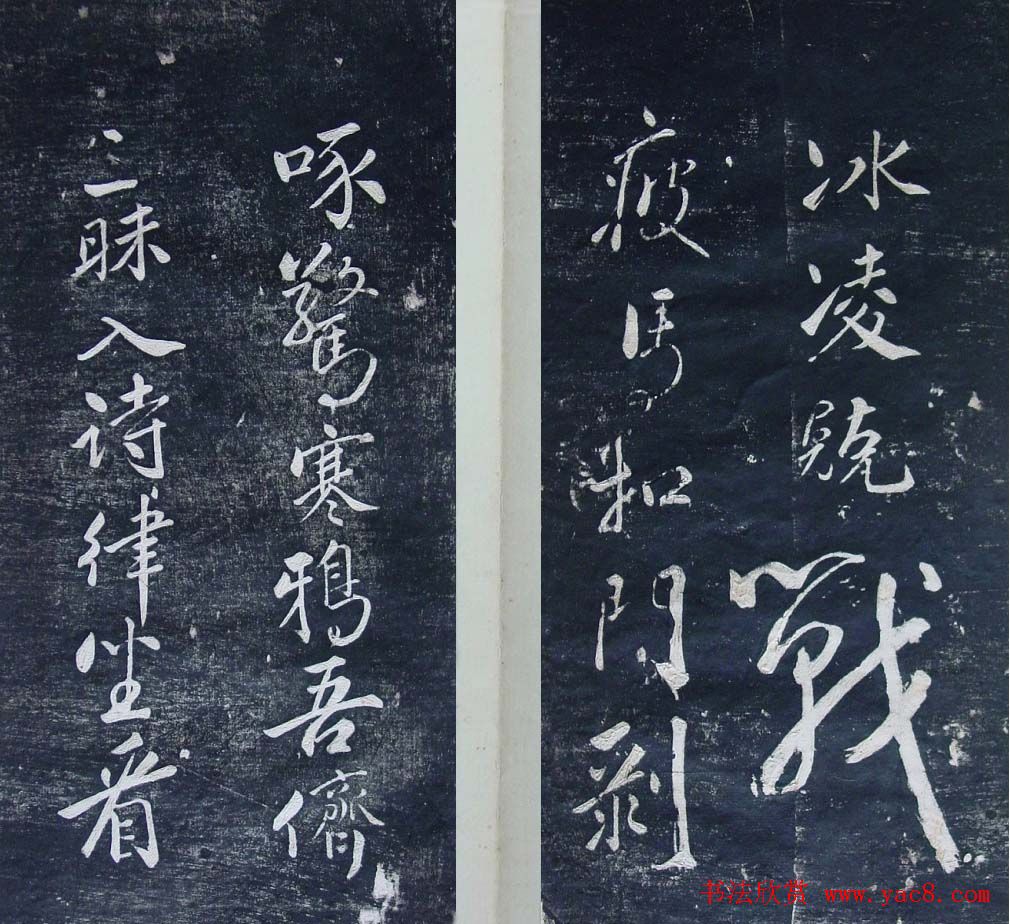 冰凌兢戰
疲馬扣門剥
啄驚寒鴉吾儕
三昧入詩律坐看
书法欣赏 www.yac8.com